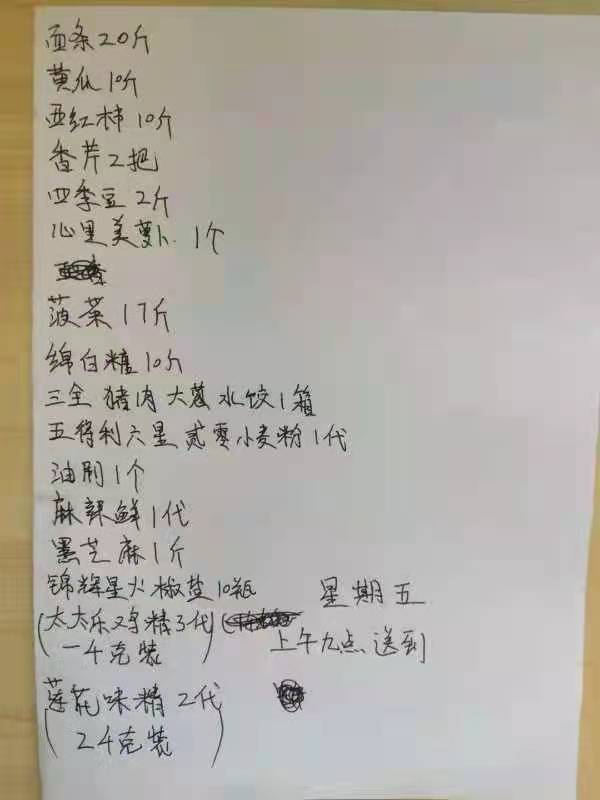 面条20斤
黄瓜10斤
西红柿10斤
香芹2把
四季豆2斤
心里美萝卜.1个
菠菜17斤
绵白糖10斤
三全 猪肉大葱水饺1箱
五得利六星贰零小麦粉1代
油刷1个
麻辣鲜1代
黑芝麻1斤
锦辉星火椒盐10瓶
星期五
(太太乐鸡精3代
一4克装)
上午九点送到
(莲花味精2代
24克装)